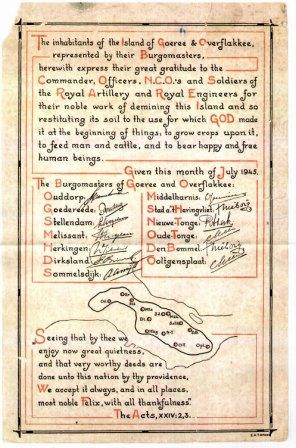 The inhabitants of the Island of Goeree & Overflakkee,
represented by their Burgomasters,
herewith express their great gratitude to the
Commander, Officers, N.C.O.'s and Soldiers of
the Royal Artillery and Royal Engineers for
their noble work of demining this Island and so
restituting its soil to the use for which GOD made
it at the beginning of things; to grow crops upon it,
to feed man and cattle, and to bear happy and free
human beings.
Given this month of July 1945.
The Burgomasters of Goeree and Overflakkee:
Ouddorp:
Goedereede:
Stellendam:
Melissant:
Herkingen:
Dirksland:
Sommelsdijk:
Middelharnis:
Stad a/t Haringvliet:
Nieuwe-Tonge:
Oude-Tonge:
Den Bommel:
Ooltgensplaat:
Seeing that by thee we
enjoy now great quietness,
and that very worthy deeds are
done unto this nation by thy providence,
We accept it always, and in all places,
most noble Felix, with all thankfulness".
The Acts, XXIV: 2,3.